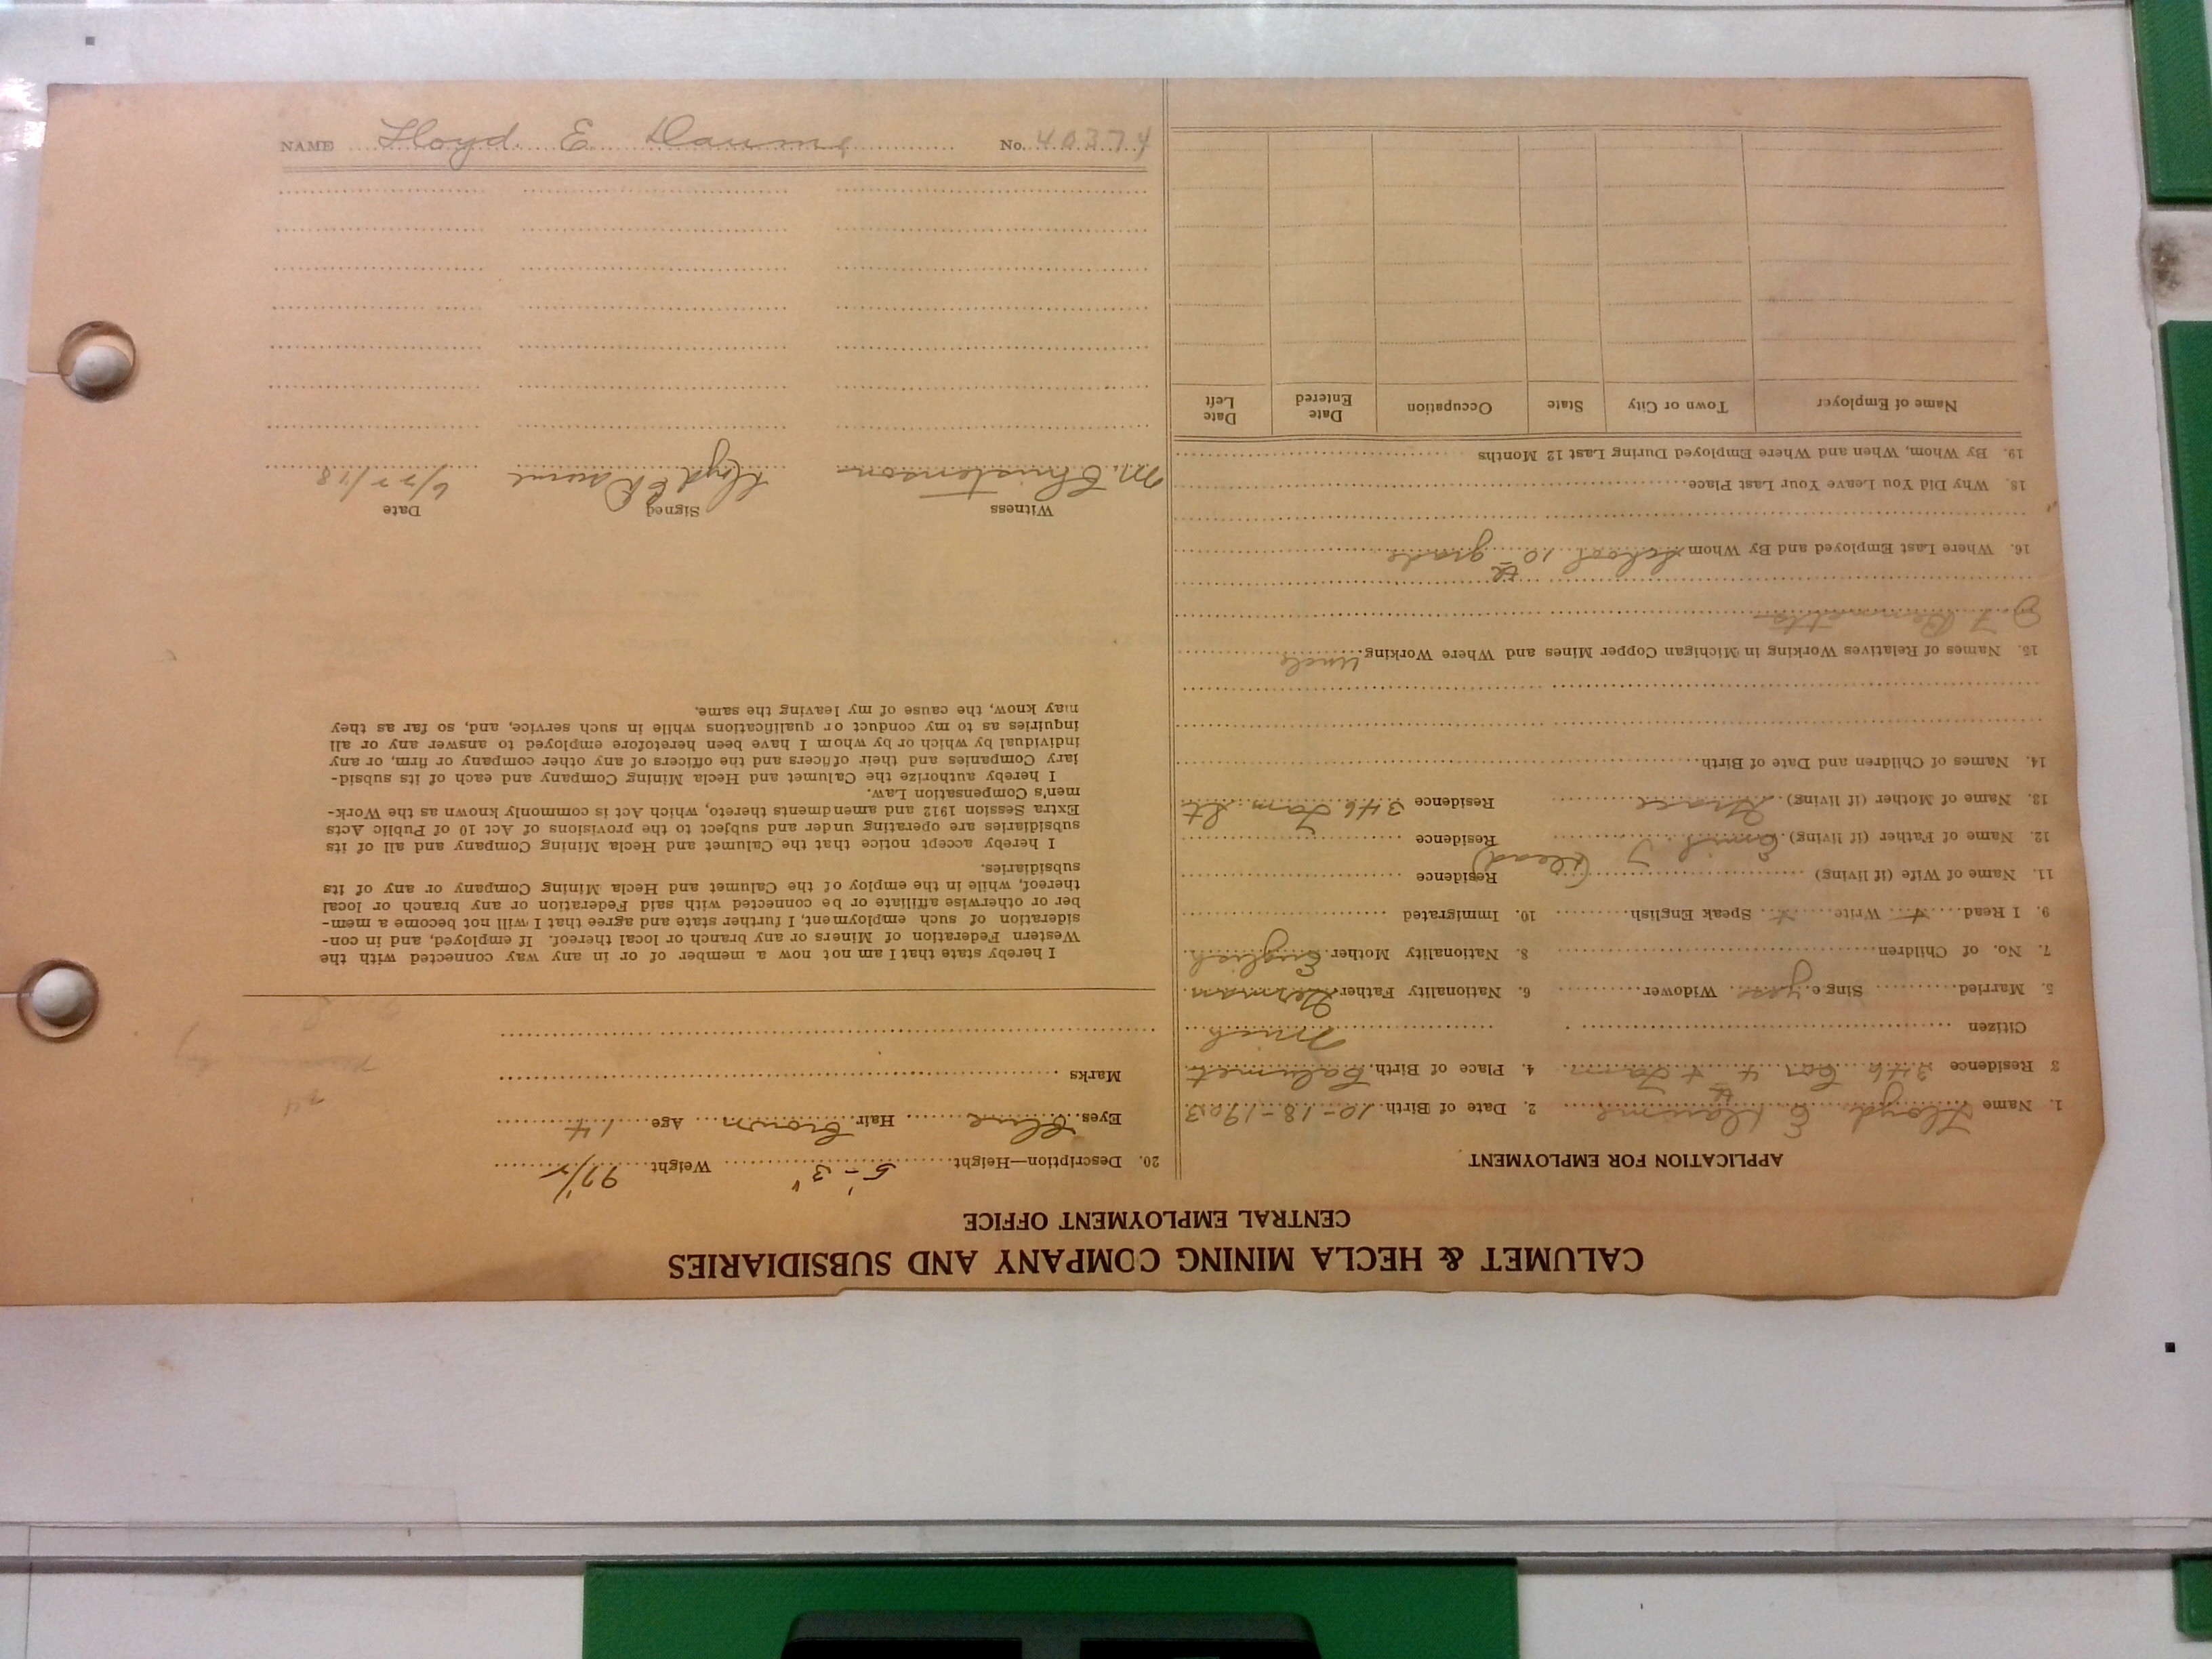 CALUMET & HECLA MINING COMPANY AND SUBSIDIARIES
CENTRAL EMPLOYMENT OFFICE
APPLICATION FOR EMPLOYMENT
1. Name Lloyd E Daume 2. Date of Birth 10-18-1903
3 Residence 346 Cor 4th & Tam 4. Place of Birth Calumet
Citizen Mich
5. Married Single yes Widower 6. Nationality Father German
7. No. of Children 8. Nationality Mother English
9. I Read + Write + Speak English 10. Immigrated
11. Name of Wife (if living) Residence
12. Name of Father (if living) Emil J (Dead) Residence
13. Name of Mother (if living) Grace Residence 346 Tam St
14. Names of Children and Date of Birth
15. Names of Relatives Working in Michigan Copper Mines and Where Working Uncle
J. F. Bennetts
16. Where Last Employed and By Whom School 10th grade
18. Why Did You Leave Your Last Place
19. By Whom, When and Where Employed During Last 12 Months
Name of Employer Town or City State Occupation Date Entered Date Left
20. Description—Height 5'-3" Weight 97 1/2
Eyes Blue Hair Brown Age 14
Marks
I hereby state that I am not now a member of or in any way connected with the
Western Federation of Miners or any branch or local thereof. If employed, and in con-
sideration of such employment, I further state and agree that I will not become a mem-
ber or otherwise affiliate or be connected with said Federation or any branch or local
thereof, while in the employ of the Calumet and Hecla Mining Company or any of its
subsidiaries.
I hereby accept notice that the Calumet and Hecla Mining Company and all of its
subsidiaries are operating under and subject to the provisions of Act 10 of Public Acts
Extra Session 1912 and amendments thereto, which Act is commonly known as the Work-
men's Compensation Law.
I hereby authorize the Calumet and Hecla Mining Company and each of its subsid-
iary Companies and their officers and the officers of any other company or firm, or any
individual by which or by whom I have been heretofore employed to answer any or all
inquiries as to my conduct or qualifications while in such service, and, so far as they
may know, the cause of my leaving the same.
Witness Signed Date
M. Christenson Lloyd E Daume 6/27/18
NAME Lloyd E. Daume No. 40374